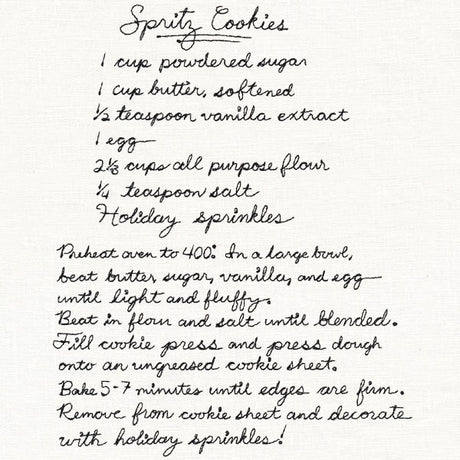 Spritz Cookies
1 cup powdered sugar
1 cup butter, softened
½ teaspoon vanilla extract
1 egg
2⅓ cups all purpose flour
¼ teaspoon salt
Holiday sprinkles
Preheat oven to 400°. In a large bowl,
beat butter, sugar, vanilla, and egg
until light and fluffy.
Beat in flour and salt until blended.
Fill cookie press and press dough
onto an ungreased cookie sheet.
Bake 5-7 minutes until edges are firm.
Remove from cookie sheet and decorate
with holiday sprinkles!